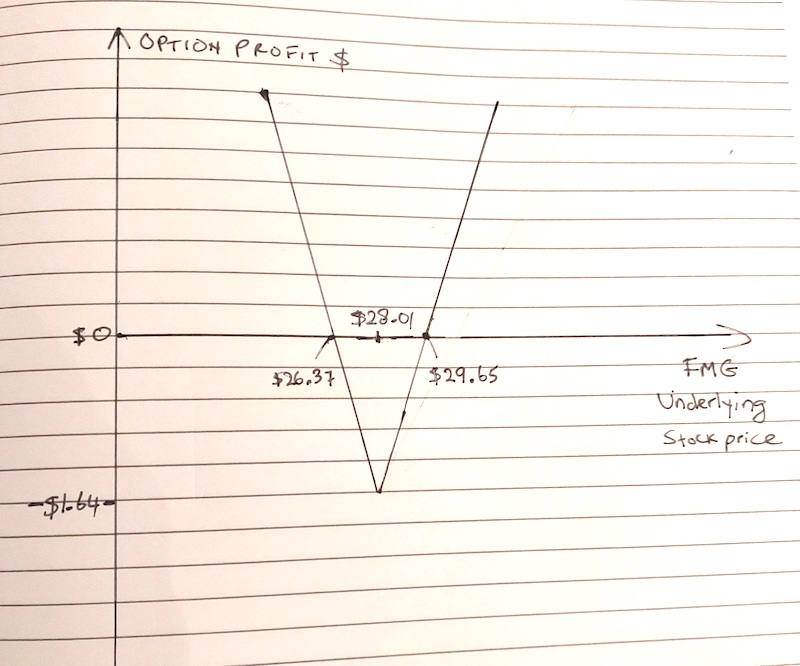 OPTION PROFIT $
$28.01
$0
$26.37
$29.65
FMG
Underlying
Stock price
-$1.64